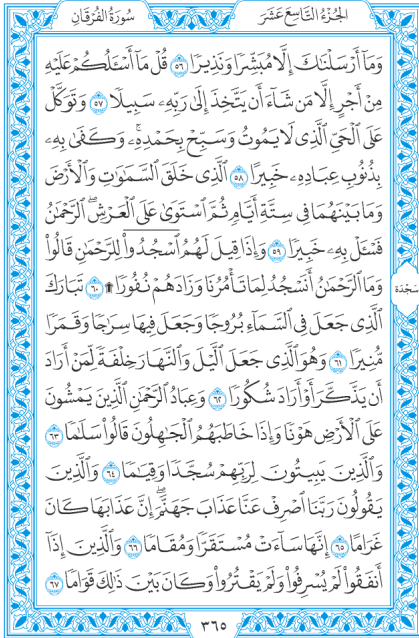 الجُزْءُ التَّاسِعَ عَشَرَ
سُورَةُ الفُرْقَانِ
وَمَآ أَرْسَلْنَٰكَ إِلَّا مُبَشِّرًا وَنَذِيرًا ٥٦ قُلْ مَآ أَسْـَٔلُكُمْ عَلَيْهِ
مِنْ أَجْرٍ إِلَّا مَن شَآءَ أَن يَتَّخِذَ إِلَىٰ رَبِّهِۦ سَبِيلًا ٥٧ وَتَوَكَّلْ
عَلَى ٱلْحَىِّ ٱلَّذِى لَا يَمُوتُ وَسَبِّحْ بِحَمْدِهِۦۚ وَكَفَىٰ بِهِۦ
بِذُنُوبِ عِبَادِهِۦ خَبِيرًا ٥٨ ٱلَّذِى خَلَقَ ٱلسَّمَٰوَٰتِ وَٱلْأَرْضَ
وَمَا بَيْنَهُمَا فِى سِتَّةِ أَيَّامٍ ثُمَّ ٱسْتَوَىٰ عَلَى ٱلْعَرْشِۖ ٱلرَّحْمَٰنُ
فَسْـَٔلْ بِهِۦ خَبِيرًا ٥٩ وَإِذَا قِيلَ لَهُمُ ٱسْجُدُوا۟ لِلرَّحْمَٰنِ قَالُوا۟
وَمَا ٱلرَّحْمَٰنُ أَنَسْجُدُ لِمَا تَأْمُرُنَا وَزَادَهُمْ نُفُورًا ۩ ٦٠ تَبَارَكَ
سَجْدَة
ٱلَّذِى جَعَلَ فِى ٱلسَّمَآءِ بُرُوجًا وَجَعَلَ فِيهَا سِرَٰجًا وَقَمَرًا
مُّنِيرًا ٦١ وَهُوَ ٱلَّذِى جَعَلَ ٱلَّيْلَ وَٱلنَّهَارَ خِلْفَةً لِّمَنْ أَرَادَ
أَن يَذَّكَّرَ أَوْ أَرَادَ شُكُورًا ٦٢ وَعِبَادُ ٱلرَّحْمَٰنِ ٱلَّذِينَ يَمْشُونَ
عَلَى ٱلْأَرْضِ هَوْنًا وَإِذَا خَاطَبَهُمُ ٱلْجَٰهِلُونَ قَالُوا۟ سَلَٰمًا ٦٣
وَٱلَّذِينَ يَبِيتُونَ لِرَبِّهِمْ سُجَّدًا وَقِيَٰمًا ٦٤ وَٱلَّذِينَ
يَقُولُونَ رَبَّنَا ٱصْرِفْ عَنَّا عَذَابَ جَهَنَّمَۖ إِنَّ عَذَابَهَا كَانَ
غَرَامًا ٦٥ إِنَّهَا سَآءَتْ مُسْتَقَرًّا وَمُقَامًا ٦٦ وَٱلَّذِينَ إِذَآ
أَنفَقُوا۟ لَمْ يُسْرِفُوا۟ وَلَمْ يَقْتُرُوا۟ وَكَانَ بَيْنَ ذَٰلِكَ قَوَامًا ٦٧
٣٦٥